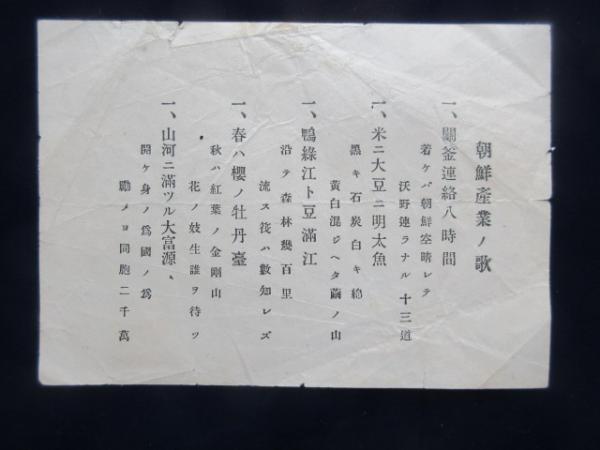 朝鮮產業ノ歌
一、關釜連絡八時間
着ケバ朝鮮空晴レテ
沃野連ラナル十三道
一、米ニ大豆ニ明太魚
黑キ石炭白キ綿
黃白混ジヘタ繭ノ山
一、鴨綠江ト豆滿江
沿テ森林幾百里
流ス筏ハ數知レズ
一、春ハ櫻ノ牡丹臺
秋ハ紅葉ノ金剛山
花ノ妓生誰ヲ待ツ
一、山河ニ滿ツル大富源、
開ケ身ノ爲國ノ爲
勵メヨ同胞二千萬